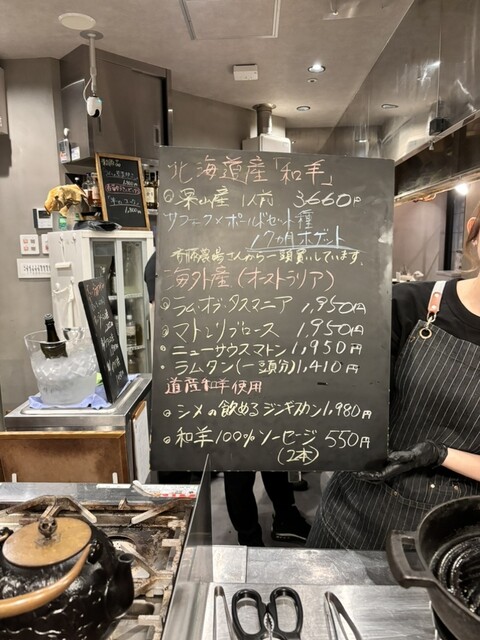 北海道産「和羊」
1人前 3660円
サフォーク×ポールドセット種
17カ月ホゲット
斉藤農場さんから一頭買いしています。
海外産(オーストラリア)
◎ラム・オブ・タスマニア 1,950円
◎マトンリブロース 1,950円
・ニューサウスマトン 1,950円
・ラムタン(一頭分) 1,410円
道産和羊使用
◎シメの飲めるジンギスカン 1,980円
◎和羊100%ソーセージ 550円
(2本)